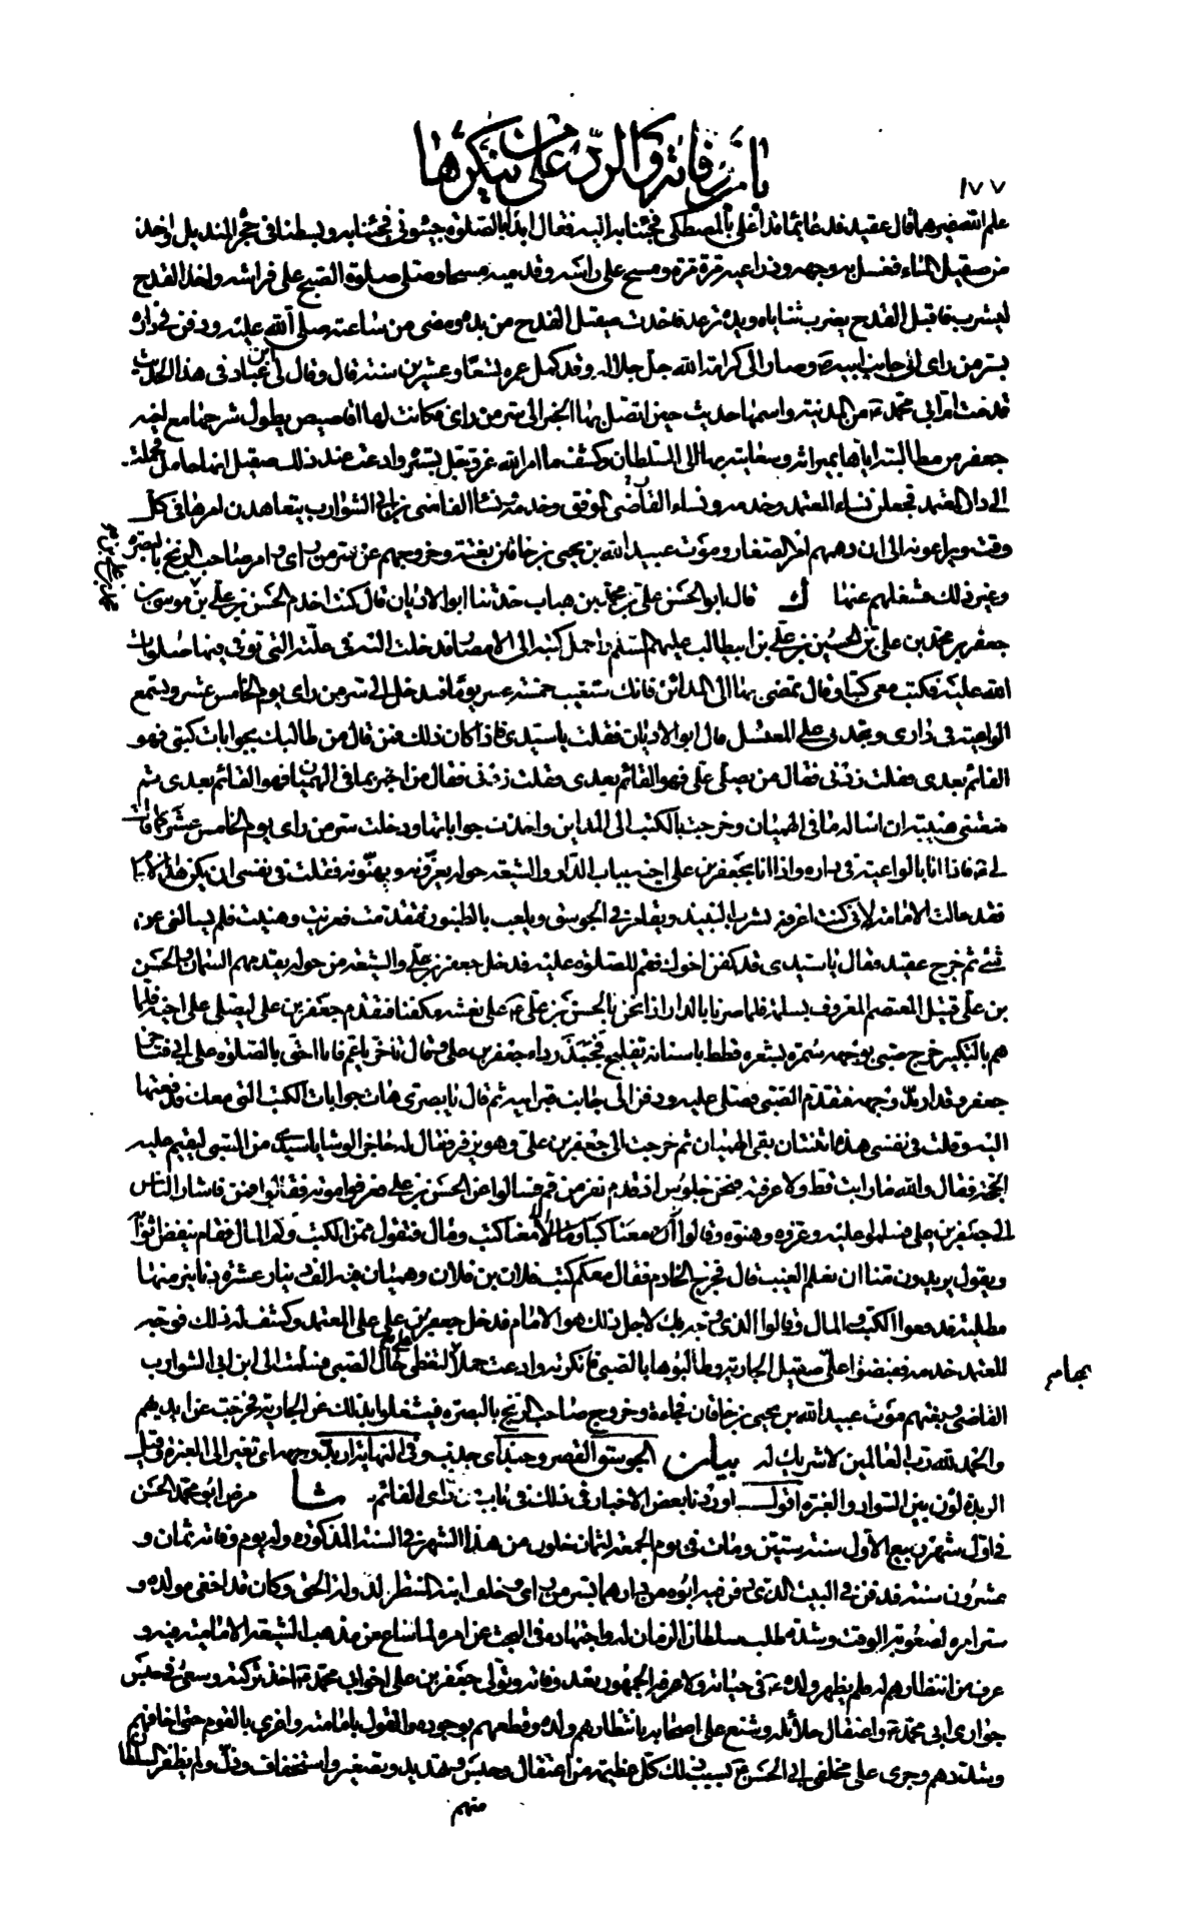 باب وفاته والرد على من ينكرها
١٧٧
علم الله ضميرهما قال عقيد فدعا بماء قد أغلي بالمصطكي فجئنا به إليه فقال أبدأ بالصلوة جيئوني فجئنا به وبسطنا في حجره المنديل وأخذ
من صقيل الماء فغسل به وجهه وذراعيه مرة مرة ومسح على رأسه وقدميه مسحا وصلى صلوة الصبح على فراشه وأخذ القدح
ليشرب فأقبل القدح يضرب ثناياه ويده ترعد فأخذت صيقل القدح من يده ومضى من ساعته صلى الله عليه ودفن في داره
بسر من رأى إلى جانب أبيه ص وصار إلى كرامة الله جل جلاله وقد كمل عمره تسعا وعشرين سنة قال وقال لي ابن عباد في هذا الحديث
قدمت أم أبي محمد ع من المدينة واسمها حديث حين اتصل بها الخبر إلى سر من رأى فكانت لها أقاصيص يطول شرحها مع أخيه
جعفر من مطالبته إياها بميراثه وسعايته بها إلى السلطان وكشف ما أمر الله عز وجل بستره وادعت عند ذلك صقيل أنها حامل فحملت
إلى دار المعتمد فجعلن نساء المعتمد وخدمه ونساء الموفق وخدمه ونساء القاضي بن أبي الشوارب يتعاهدن أمرها في كل
وقت ويراعونه إلى أن دهمهم أمر الصفار وموت عبيد الله بن يحيى بن خاقان بغتة وخروجهم عن سر من رأى وأمر صاحب الزنج بالبصرة
وغير ذلك فشغلهم عنها ك قال أبو الحسن علي بن محمد بن حباب حدثنا أبو الاديان قال كنت أخدم الحسن بن علي بن محمد بن علي بن موسى بن
جعفر بن محمد بن علي بن الحسين بن علي بن أبي طالب عليهم السلم وأحمل كتبه إلى الأمصار فدخلت إليه في علته التي توفي فيها صلوات
الله عليه فكتب معي كتبا وقال تمضي بها إلى المدائن فانك ستغيب خمسة عشر يوما فتدخل إلى سر من رأى يوم الخامس عشر وتسمع
الواعية في داري وتجدني على المغتسل قال أبو الاديان فقلت يا سيدي فإذا كان ذلك فمن قال من طالبك بجوابات كتبي فهو
القائم بعدي فقلت زدني فقال من يصلي علي فهو القائم بعدي فقلت زدني فقال من أخبر بما في الهميان فهو القائم بعدي ثم
منعتني هيبته أن أسأله ما في الهميان وخرجت بالكتب إلى المداين وأخذت جواباتها ودخلت سر من رأى يوم الخامس عشر كما قال
لي ع فإذا أنا بالواعية في داره وإذا أنا بجعفر بن علي أخيه بباب الدار والشيعة حوله يعزونه ويهنونه فقلت في نفسي إن يكن هذا الامام
فقد حالت الامامة لأني كنت أعرفه بشرب النبيذ ويقامر في الجوسق ويلعب بالطنبور فتقدمت فعزيت وهنيت فلم يسألني عن
شئ ثم خرج عقيد فقال يا سيدي قد كفن أخوك فقم للصلوة عليه فدخل جعفر بن علي والشيعة من حوله يقدمهم السمان والحسن
بن علي قتيل المعتصم المعروف بسلمة فلما صرنا بالدار إذا نحن بالحسن بن علي ص على نعشه مكفنا فتقدم جعفر بن علي ليصلي على أخيه فلما
هم بالتكبير خرج صبي بوجهه سمرة بشعره قطط بأسنانه تفليج فجبذ رداء جعفر بن علي وقال تأخر يا عم فأنا أحق بالصلوة على أبي فتأخر
جعفر وقد اربد وجهه فتقدم الصبي فصلى عليه ودفن إلى جانب قبر أبيه ثم قال يا بصري هات جوابات الكتب التي معك فدفعتها
إليه وقلت في نفسي هذه اثنتان بقي الهميان ثم خرجت إلى جعفر بن علي وهو يزفر فقال له حاجز الوشا يا سيدي من الصبي ليقيم عليه
الحجة فقال والله ما رأيت قط ولا عرفته فنحن جلوس إذ قدم نفر من قم فسالوا عن الحسن بن علي فعرفوا موته فقالوا فمن فاشار الناس
إلى جعفر بن علي فسلموا عليه وعزوه وهنوه وقالوا إن معنا كتبا ومالا فتقول ممن الكتب وكم المال فقام ينفض أثوابه
ويقول يريدون منا أن نعلم الغيب قال فخرج الخادم فقال معكم كتب فلان بن فلان وهميان فيه ألف دينار عشرة دنانير منها
مطلية فدفعوا الكتب والمال وقالوا الذي وجه بك لأجل ذلك هو الامام فدخل جعفر بن علي على المعتمد وكشف له ذلك فوجه
المعتمد خدمه فقبضوا على صقيل الجارية وطالبوها بالصبي فأنكرته وادعت حملا بها لتغطي على حال الصبي فسلمت إلى ابن أبي الشوارب
القاضي وبغتهم موت عبيد الله بن يحيى بن خاقان فجاءة وخروج صاحب الزنج بالبصرة فشغلوا بذلك عن الجارية فخرجت عن أيديهم
والحمد لله رب العالمين لا شريك له بيان الجوسق القصر وجبذ أي جذب وفي النهاية اربد وجهه أي تغير إلى الغبرة وقيل
الربدة لون بين السواد والغبرة أقول أوردنا بعض الاخبار في ذلك في باب من رأى القائم شا مرض أبو محمد الحسن
في أول شهر ربيع الأول سنة ستين ومات في يوم الجمعة لثمان خلون من هذا الشهر في السنة المذكورة وله يوم وفاته ثمان و
عشرون سنة فدفن في البيت الذي دفن فيه أبوه من دارهما بسر من رأى وخلف ابنه المنتظر لدولة الحق وكان قد أخفى مولده و
ستر أمره لصعوبة الوقت وشدة طلب سلطان الزمان له واجتهاده في البحث عن أمره لما شاع من مذهب الشيعة الامامية فيه و
عرف من انتظارهم له فلم يظهر ولده ع في حياته ولا عرفه الجمهور بعد وفاته وتولى جعفر بن علي أخو أبي محمد ع أخذ تركته وسعى في حبس
جواري أبي محمد ع واعتقال حلائله وشنع على أصحابه بانتظارهم ولده وقطعهم بوجوده والقول بامامته وأغرى بالقوم حتى أخافهم
وشددهم وجرى على مخلفي أبي الحسن ع بسبب ذلك كل عظيمة من اعتقال وحبس وتهديد وتصغير واستخفاف وذل ولم يظفر السلطان
منهم